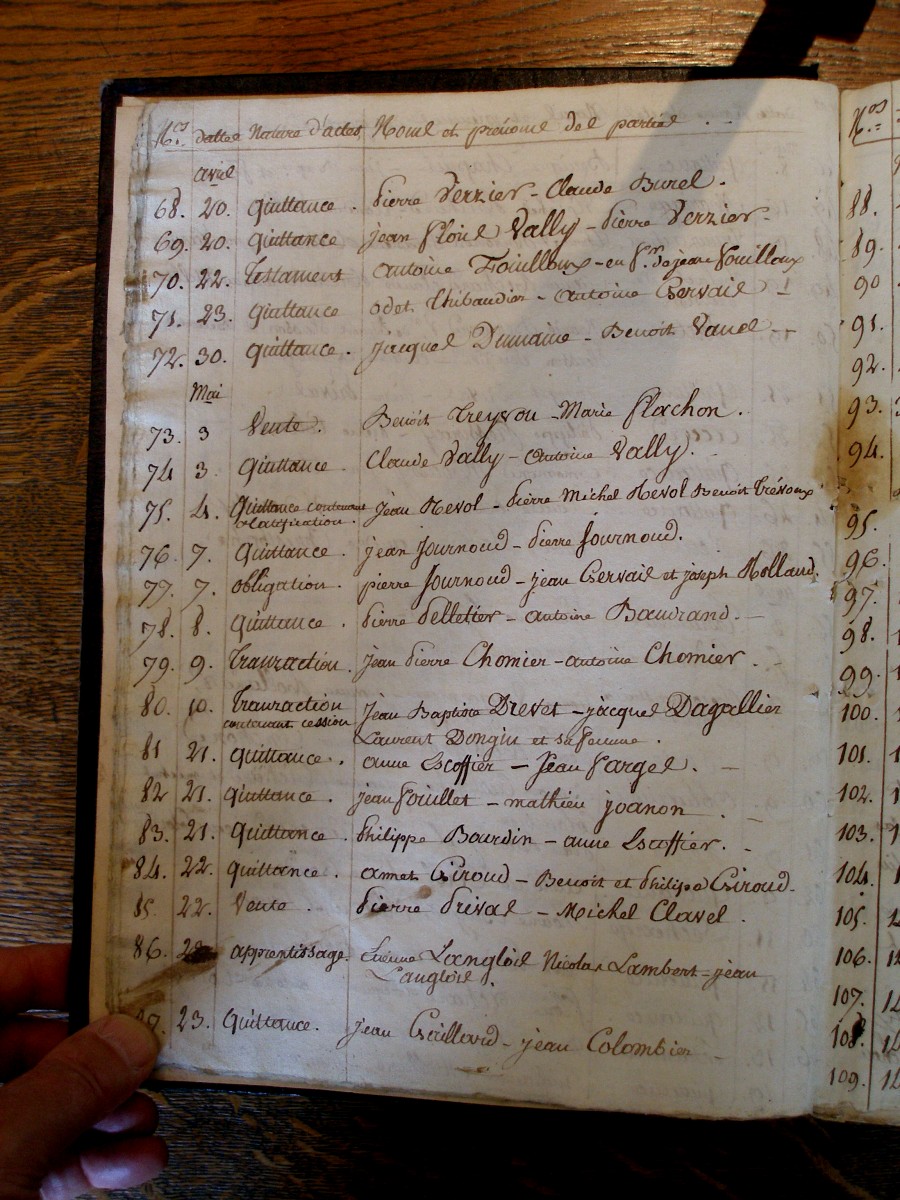 N.os dattes Nature d'actes Noms et prénoms des parties
avril
68. 20. Quittance. pierre Verzier - Claude Burel.
69. 20. Quittance jean Floris Vally - pierre Verzier.
70. 22. Testament antoine Fouilloux - en f.r de jean fouilloux
71. 23. Quittance odet Thibaudier - antoine Gervais
72. 30. Quittance. jacques Dumaine - Benoit Vanel
Mai
73. 3 Vente. Benoit Treyvou - Marie Flachon.
74 3. Quittance. Claude Vally - antoine Vally.
75. 4. Quittance contenant jean Revol - pierre Michel Revol Benoit Trévoux
Ratification.
76 7. Quittance. jean Journoud - pierre Journoud.
77. 7. obligation. pierre Journoud - jean Gervais et joseph Rolland.
78. 8. Quittance. pierre pelletier - antoine Baudrand.
79. 9. Transaction. jean pierre Chomier - antoine Chomier.
80. 10. Transaction jean Baptiste Drevet - jacques Dagallier
contenant cession Laurent Dongin et sa femme.
81 21. Quittance. anne Escoffier - Jean Farges.
82 21. Quittance. jean fouillet - mathieu joanon.
83. 21. Quittance. philippe Bourdin - anne Escoffier.
84. 22. Quittance. amet Giroud - Benoit et philippe Giroud.
85. 22. Vente. pierre prival - Michel Clavel.
86. apprentissage. Etienne Langlois Nicolas Lambert - jean
Langlois.
23. Quittance. jean Gaillard - jean Colombier
N.os
88.
89.
90
91.
92.
93.
94.
95.
96.
97.
98.
99.
100.
101.
102.
103.
104.
105.
106.
107.
108.
109.